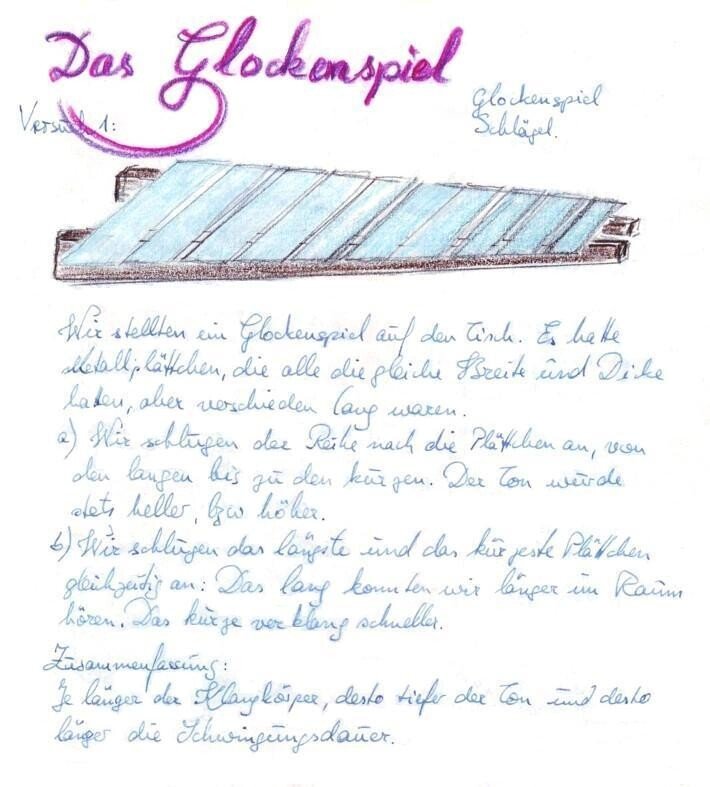 Das Glockenspiel
Glockenspiel
Schlägel.
Versuch 1:
Wir stellten ein Glockenspiel auf den Tisch. Es hatte
Metallplättchen, die alle die gleiche Breite und Dicke
haten, aber verschieden lang waren.
a) Wir schlugen der Reihe nach die Plättchen an, von
den langen bis zu den kurzen. Der Ton wurde
stets heller, bzw höher.
b) Wir schlugen das längste und das kürzeste Plättchen
gleichzeitig an: Das lang konnten wir länger im Raum
hören. Das kurze verklang schneller.
Zusammenfassung:
Je länger der Klangkörper, desto tiefer der Ton und desto
länger die Schwingungsdauer.